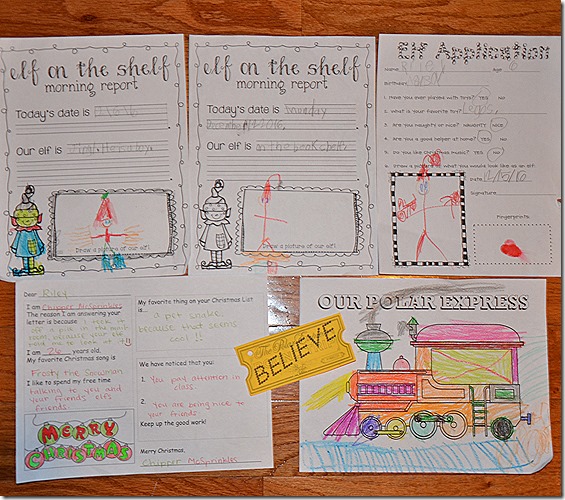 elf on the shelf
morning report
Today's date is
Our elf is
Draw a picture of our elf!
elf on the shelf
morning report
Today's date is Monday
Our elf is on the book shelf
Draw a picture of our elf!
Elf Application
Name
Age 6
Birthday
1. Have you ever played with toys? YES NO
2. What is your favorite toy? Legos
3. Are you naughty or nice? NAUGHTY NICE
4. Are you a good helper at home? YES NO
5. Do you like Christmas music? YES NO
6. Draw a picture of what you would look like as an elf.
Date
Signature
Fingerprints
Dear Riley
I am Chipper McSprinkles
The reason I am answering your
letter is because
I am 26 years old.
My favorite Christmas song is
Frosty the Snowman
I like to spend my free time
talking to you and
your friends elf's
friends.
MERRY
CHRISTMAS
My favorite thing on your Christmas List
is...
a pet snake
because that seems
cool!!
We have noticed that you:
1. You pay attention in
class
2. You are being nice to
your friends
Keep up the good work!
Merry Christmas,
Chipper McSprinkles
BELIEVE
OUR POLAR EXPRESS